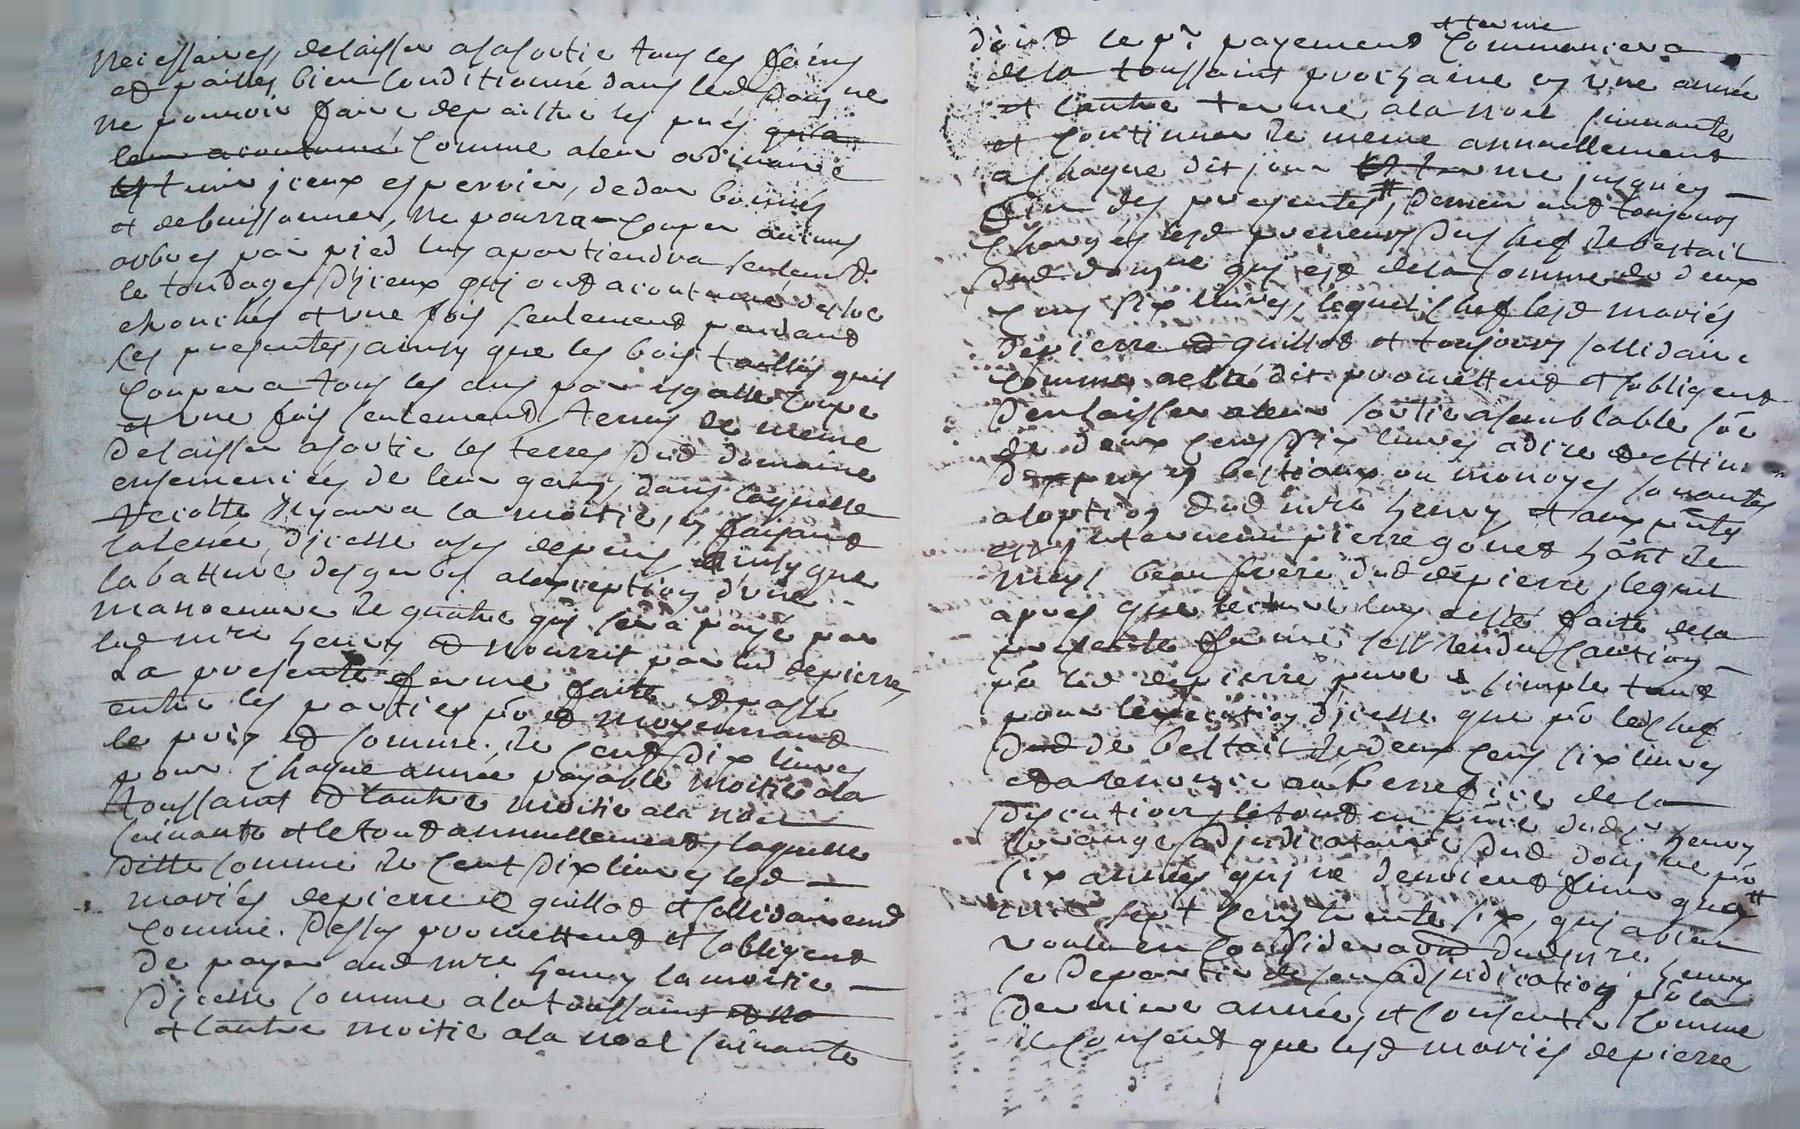 necessaires, delaisser a sa sortie tous les foins
et pailles bien conditionné dans led domne
ne pouvoir faire depaitre les prés qu'a
leur acoutumé comme a leur ordinaire
et tenir jceux espervier, dedar bonnés
et debuissonner, ne pourra couper aucuns
arbres par pied luy apartiendra seulemt
le tondages d'jceux quj ont acoutumé destre
ebouches et une fois seulement pendant
les presentes, ainsy que les bois taillis quil
coupera tous les ans par esgalle coupe
et une fois seulement, tenus de meme
delaisser a sortie les terres dud domaine
ensemencées de leur gens dans laquelle
recolte il y aura la moitie, en faisant
la levée, d'jcelle a ses depens ainsy que
la batture des gerbes a lexception d'une
manoeuvre de quatre qui sera payé par
led mre henry et nourrit par led depierre,
La presente ferme faite et passé
entre les parties po et moyennant
le prix et somme de cent dix livres
pour chaque année payable moitie a la
toussaint et lautre moitie a la noel
suivante et le tout annuellement, laquelle
ditte somme de cent dix livres lesd
mariés depierre et guillot et sollidairement
comme dessus promettent et sobligent
de payer aud mre henry la moitie
d'jcelle somme a la toussaint et no
et lautre moitie a la noel suivante
et terme
dont le pr payement commencera
de la toussaint prochaine en une année
et lautre terme a la noel suivante
et continuer de meme annuellement
a chaque dit jour et terme jusques
fin des presentes, demeurant toujours
chargés lesd preneurs du chef de bestail
dud domne quj est de la somme de deux
cens six livres, lequel chef lesd mariés
depierre et guillot et toujours sollidaire
comme a esté dit promettent et sobligent
d'en laisser a leur sortie a semblable soe
de deux cens six livres a dire et estime
d'expers en bestiaux ou monoyes sonantes
a loption dud mre henry, et aux pntes
est intervenu pierre gonet hont de
beau frere dud depierre, lequel
apres que lecture luy a esté faite de la
presente ferme sest rendu caution
po led depierre pure et simple tant
pour lexecution d'jcelle que po le chef
dud de bestail de deux cens six livres
et a renoncé au benefice de la
discution, le tout en pnce dud sr henry
adjudicataire dud domne po
six années quj ne devoient finir quen
mil sept cens trente six, quj a bien
voulu en consideraõn dud mre henry
se departir de son adjudication po la
derniere année, et consentir comme
il consent que lesd mariés depierre